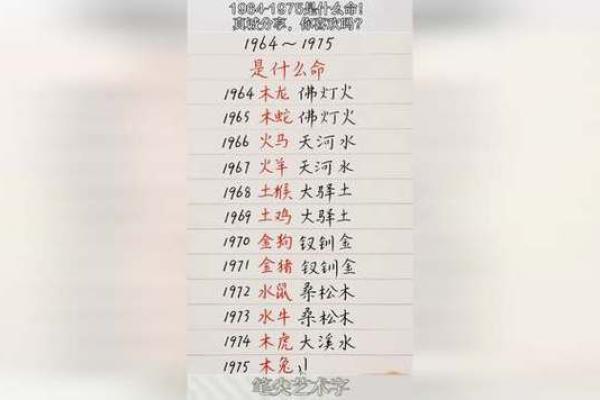 1964-1975是什么命!
真诚分享，你喜欢吗?
1964～1975
是什么命
1964 木龙 佛灯火
1965 木蛇 佛灯火
1966 火马 天河水
1967 火羊 天河水
1968 土猴 大驿土
1969 土鸡 大驿土
1970 金狗 钗钏金
1971 金猪 钗钏金
1972 水鼠 桑松木
1973 水牛 桑松木
1974 木虎 大溪水
1975 木兔
笔尖艺术字